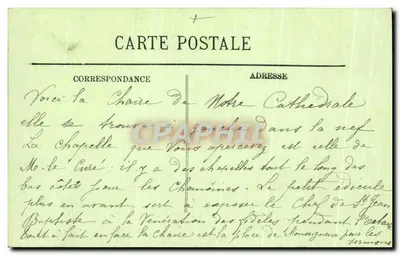 CARTE POSTALE
CORRESPONDANCE
ADRESSE
Voici la Chaire de Notre Cathédrale
elle se trouve à gauche dans la nef
La Chapelle que vous apercevez est celle de
M. le Curé; il y a des chapelles tout le long des
bas côtés pour les Chanoines. Le petit édicule
plus en avant sert à exposer le Chef de St Jean
Baptiste à la Vénération des fidèles pendant
tout à fait en face la Chaire est la place de Monseigneur pour les
sermons